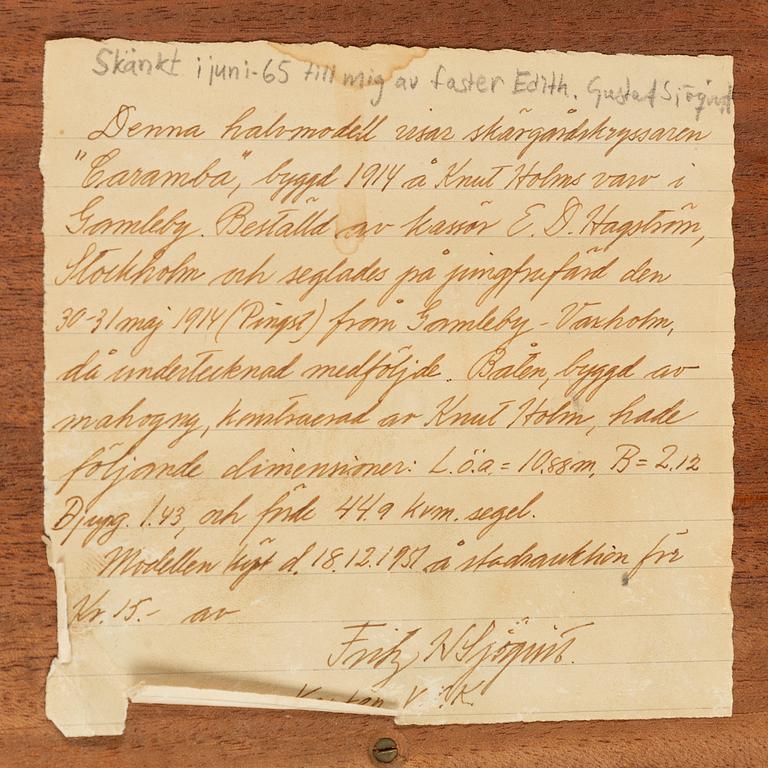 Skänkt i juni-65 till mig av faster Edith. Gustaf Sjöqvist
Denna halvmodell visar skärgårdskryssaren
"Caramba", byggd 1914 å Knut Holms varv i
Gamleby. Beställd av kassör E. D. Hagström,
Stockholm och seglades på jungfrufärd den
30-31 maj 1914 (Pingst) från Gamleby - Vaxholm,
då undertecknad medföljde. Båten, byggd av
mahogny, konstruerad av Knut Holm, hade
följande dimensioner: L.ö.a. = 10.88 m, B = 2.12
Djupg. 1.43, och förde 44.9 kvm. segel.
Modellen köpt d. 18.12.1951 å stadsauktion för
Kr. 15.- av
Fritz W Sjöqvist.